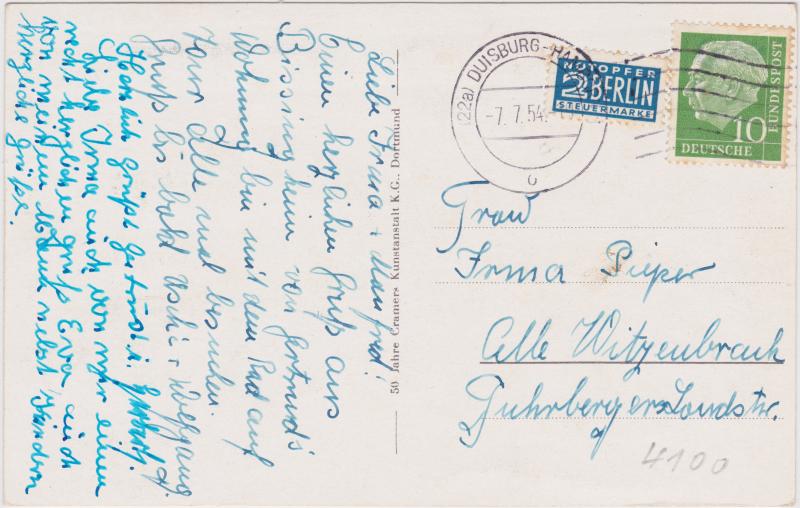 Liebe Irma + Manfred!
Einen herzlichen Gruß aus
Bissingheim von Gertrud's
Wohnung bin mit dem Rad auf
Tour. Alle mal besuchen.
Gruß bis bald Uschi + Wolfgang.
Herzlich grüßt Gertrud u.
Liebe Irma auch von mir einen
recht herzlichen gruß Eva auch
von meinem Mann nebst Kindern
herzliche Grüße.
50 Jahre Cramers Kunstanstalt K.G., Dortmund
(22a) DUISBURG-HA
-7. 7. 54.
c
NOTOPFER
2 BERLIN
STEUERMARKE
10
DEUTSCHE
BUNDESPOST
Frau
Irma Pieper
Celle Witzenbruch
Fuhrberger Landstr.
4100